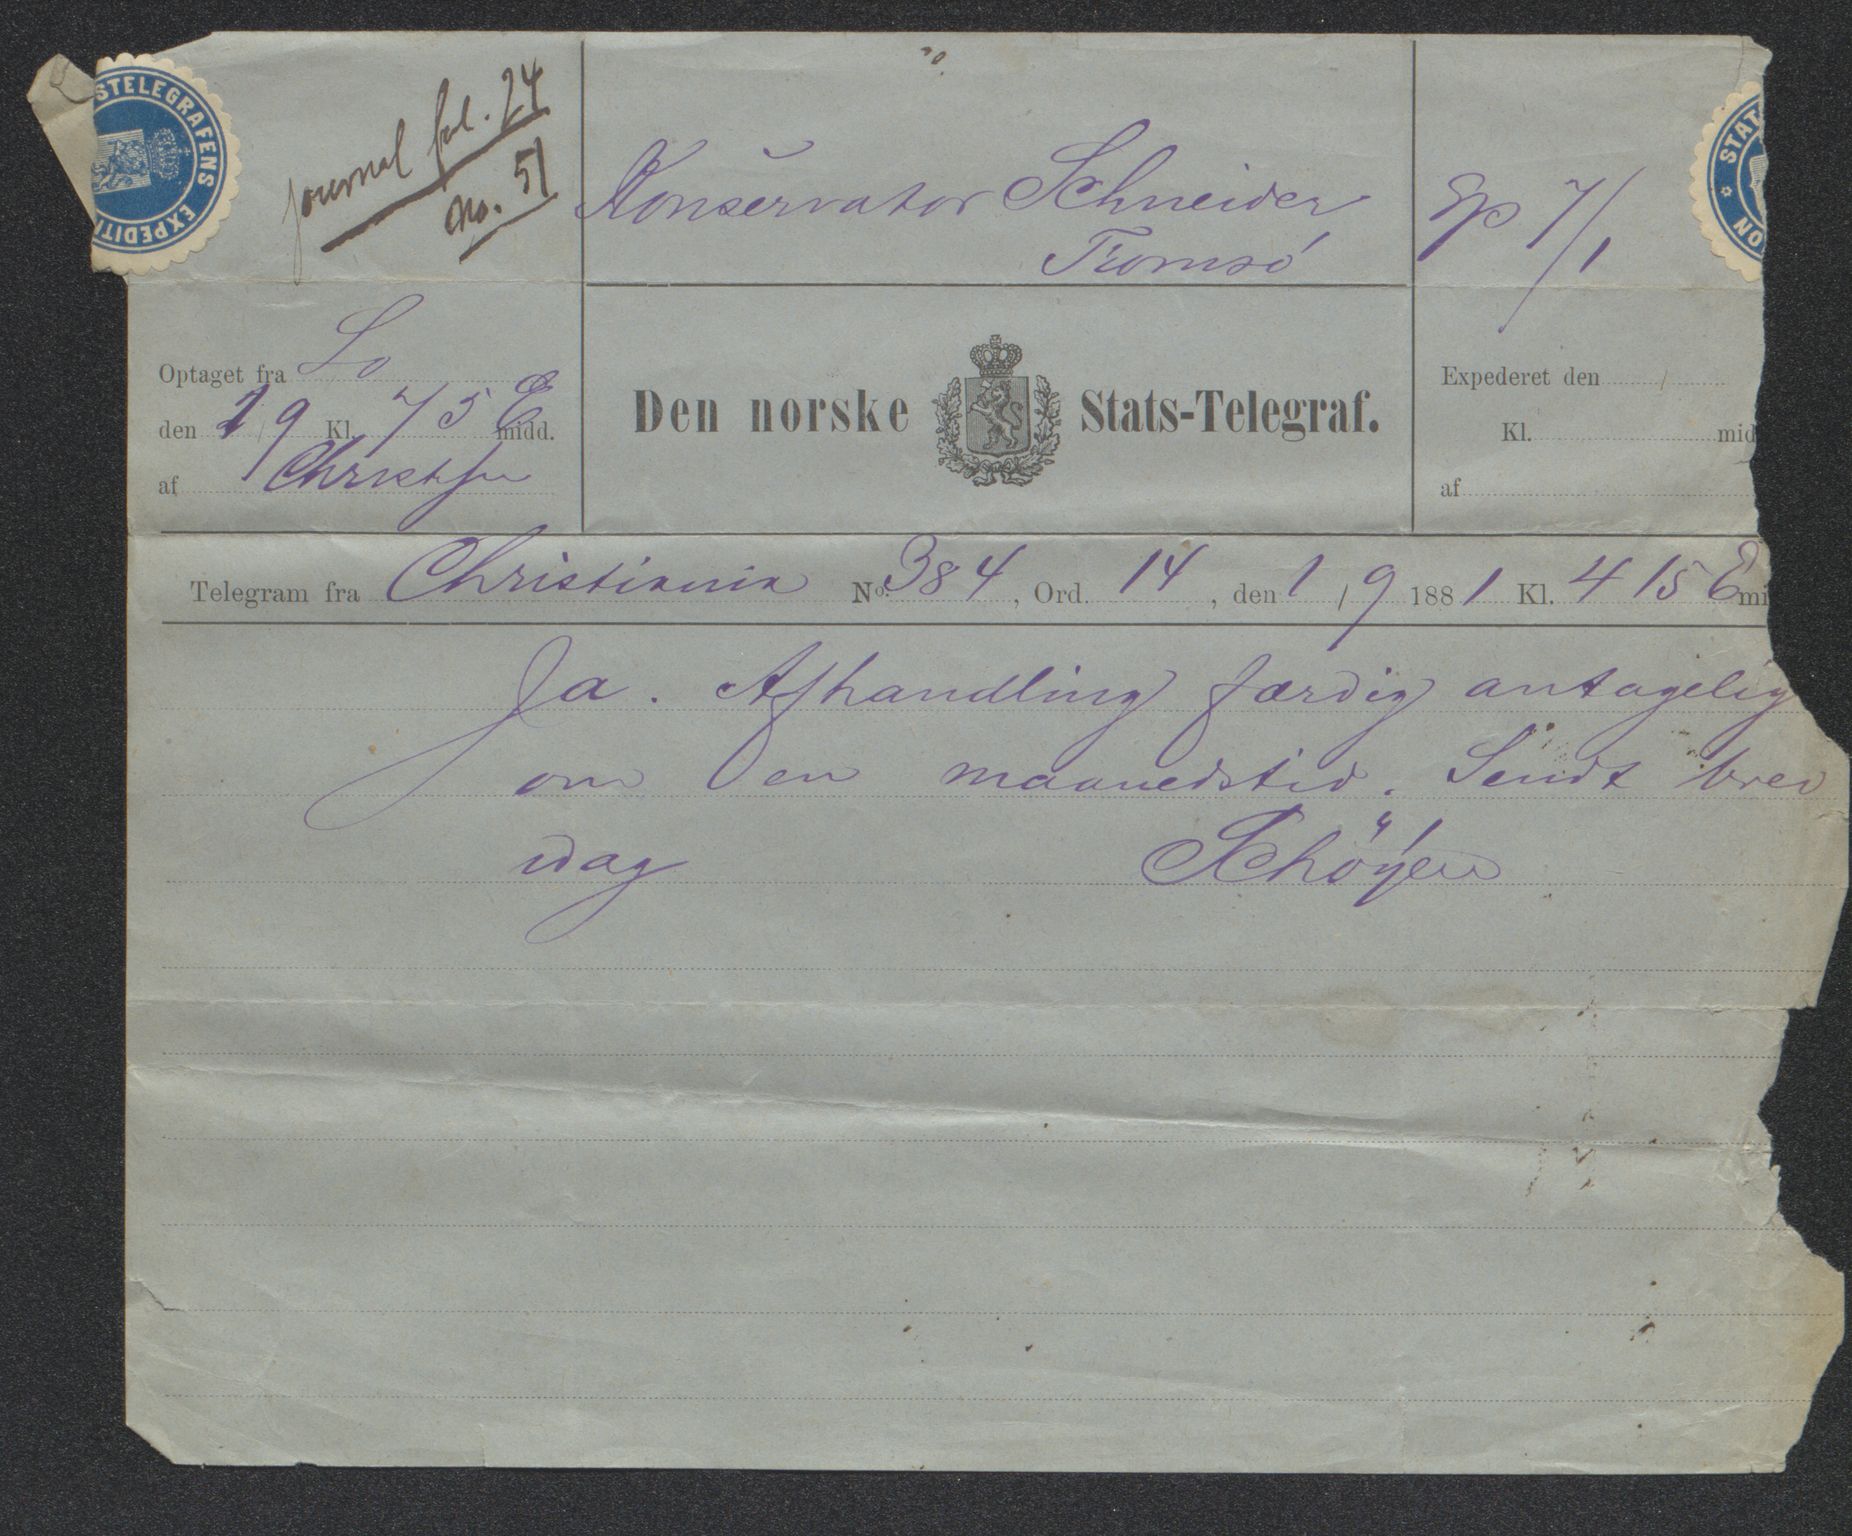 STELEGRAFENS EXPEDIT
Journal fol. 24
No. 51
Konservator Schneider
Tromsö
Exp 7/1
STAT ON
Optaget fra Lo
den 1/9 Kl. 7 5 E midd.
af
Den norske Stats-Telegraf.
Expederet den /
Kl. mid
af
Telegram fra Christiania No. 384, Ord. 14, den 1/9 1881 Kl. 4 15 E mi
Ja. Afhandling færdig antagelig
om en maanedstid. Sendt brev
idag Schöyen